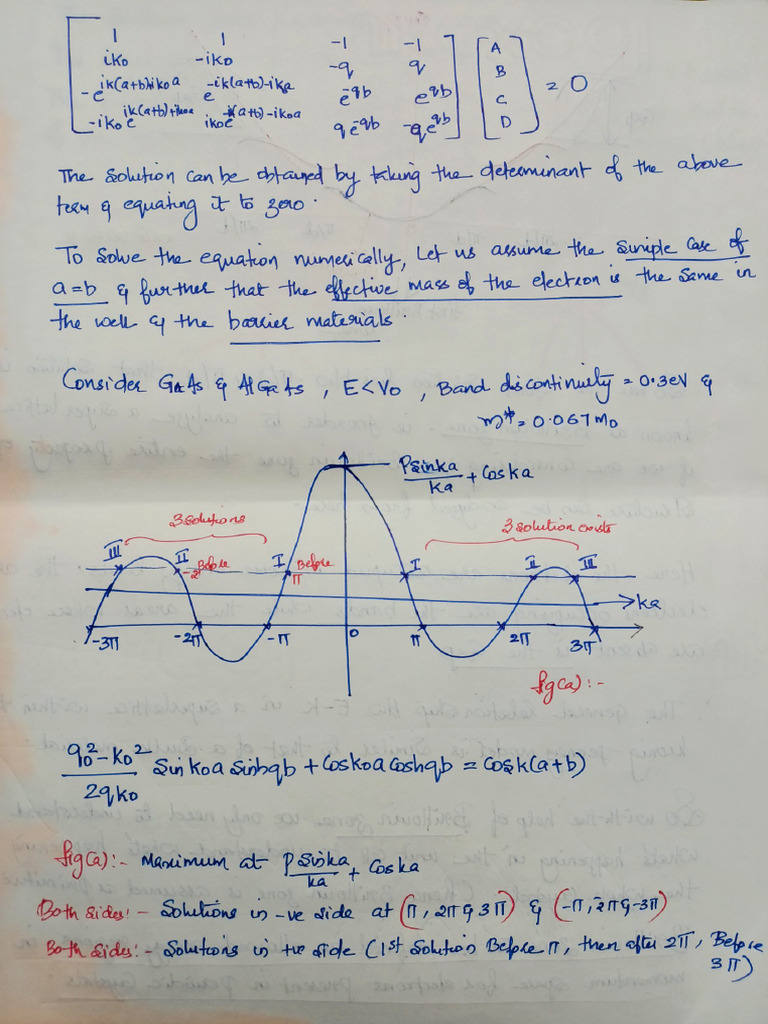 1 1 -1 -1
ik₀ -ik₀ -q q
-e^{ik(a+b)+ik₀a} e^{-ik(a+b)-ik₀a} e^{-qb} e^{qb}
-ik₀e^{ik(a+b)+ik₀a} ik₀e^{-ik(a+b)-ik₀a} qe^{-qb} -qe^{qb}
A
B
C
D
= 0
The Solution can be obtained by taking the determinant of the above
term & equating it to zero.
To Solve the equation numerically, Let us assume the simple case of
a=b & further that the effective mass of the electron is the same in
the well & the barrier materials.
Consider GaAs & AlGaAs, E<V₀, Band discontinuity = 0.3eV &
m* = 0.067m₀
P Sinka
ka
+ Coska
3 solutions
3 solution exists
III II Before -2 I Before π I II III
→ka
-3π -2π -π 0 π 2π 3π
fig(a) :-
q₀² - k₀²
2qk₀
Sin k₀a Sinhqb + Cosk₀a coshqb = Cosk(a+b)
fig(a) :- Maximum at P Sinka
ka
+ Coska
Both Sides :- Solutions in -ve side at (π, 2π & 3π) & (-π, -2π & -3π)
Both Sides :- Solutions in +ve side (1st Solution Before π, then after 2π, Before
3π)